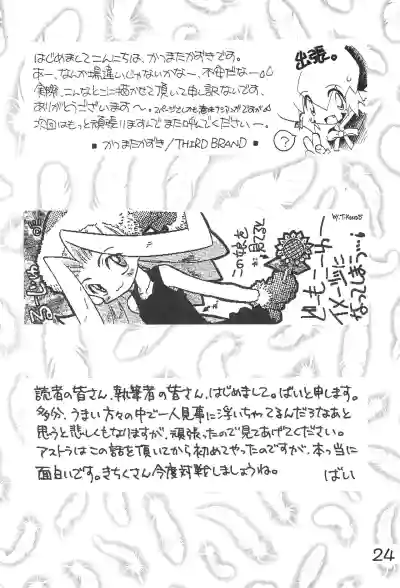 はじめましてこんにちは、かつまたかずきです。
あー、なんか場違いじゃないかな〜、不安だな〜
実際、こんなとこに描かせて頂いて申し訳ないです、
ありがとうございます〜。
次回はもっと頑張りますんでまた呼んでください〜。
■ かつまたかずき/THIRD BRAND ■
出張。
?
この娘を
見てると
どーもこーゆー
イメージに
なってしまう…!
読者の皆さん、執筆者の皆さん、はじめまして。ばいと申します。
多分、うまい方々の中で一人見事に浮いちゃてるんだろなあと
思うと悲しくもなりますが、頑張ったので見てあげてください。
アストラはこの話を頂いてから初めてやったのですが、本っ当に
面白いです。きちくさん今度対戦しましょうね。
ばい
24